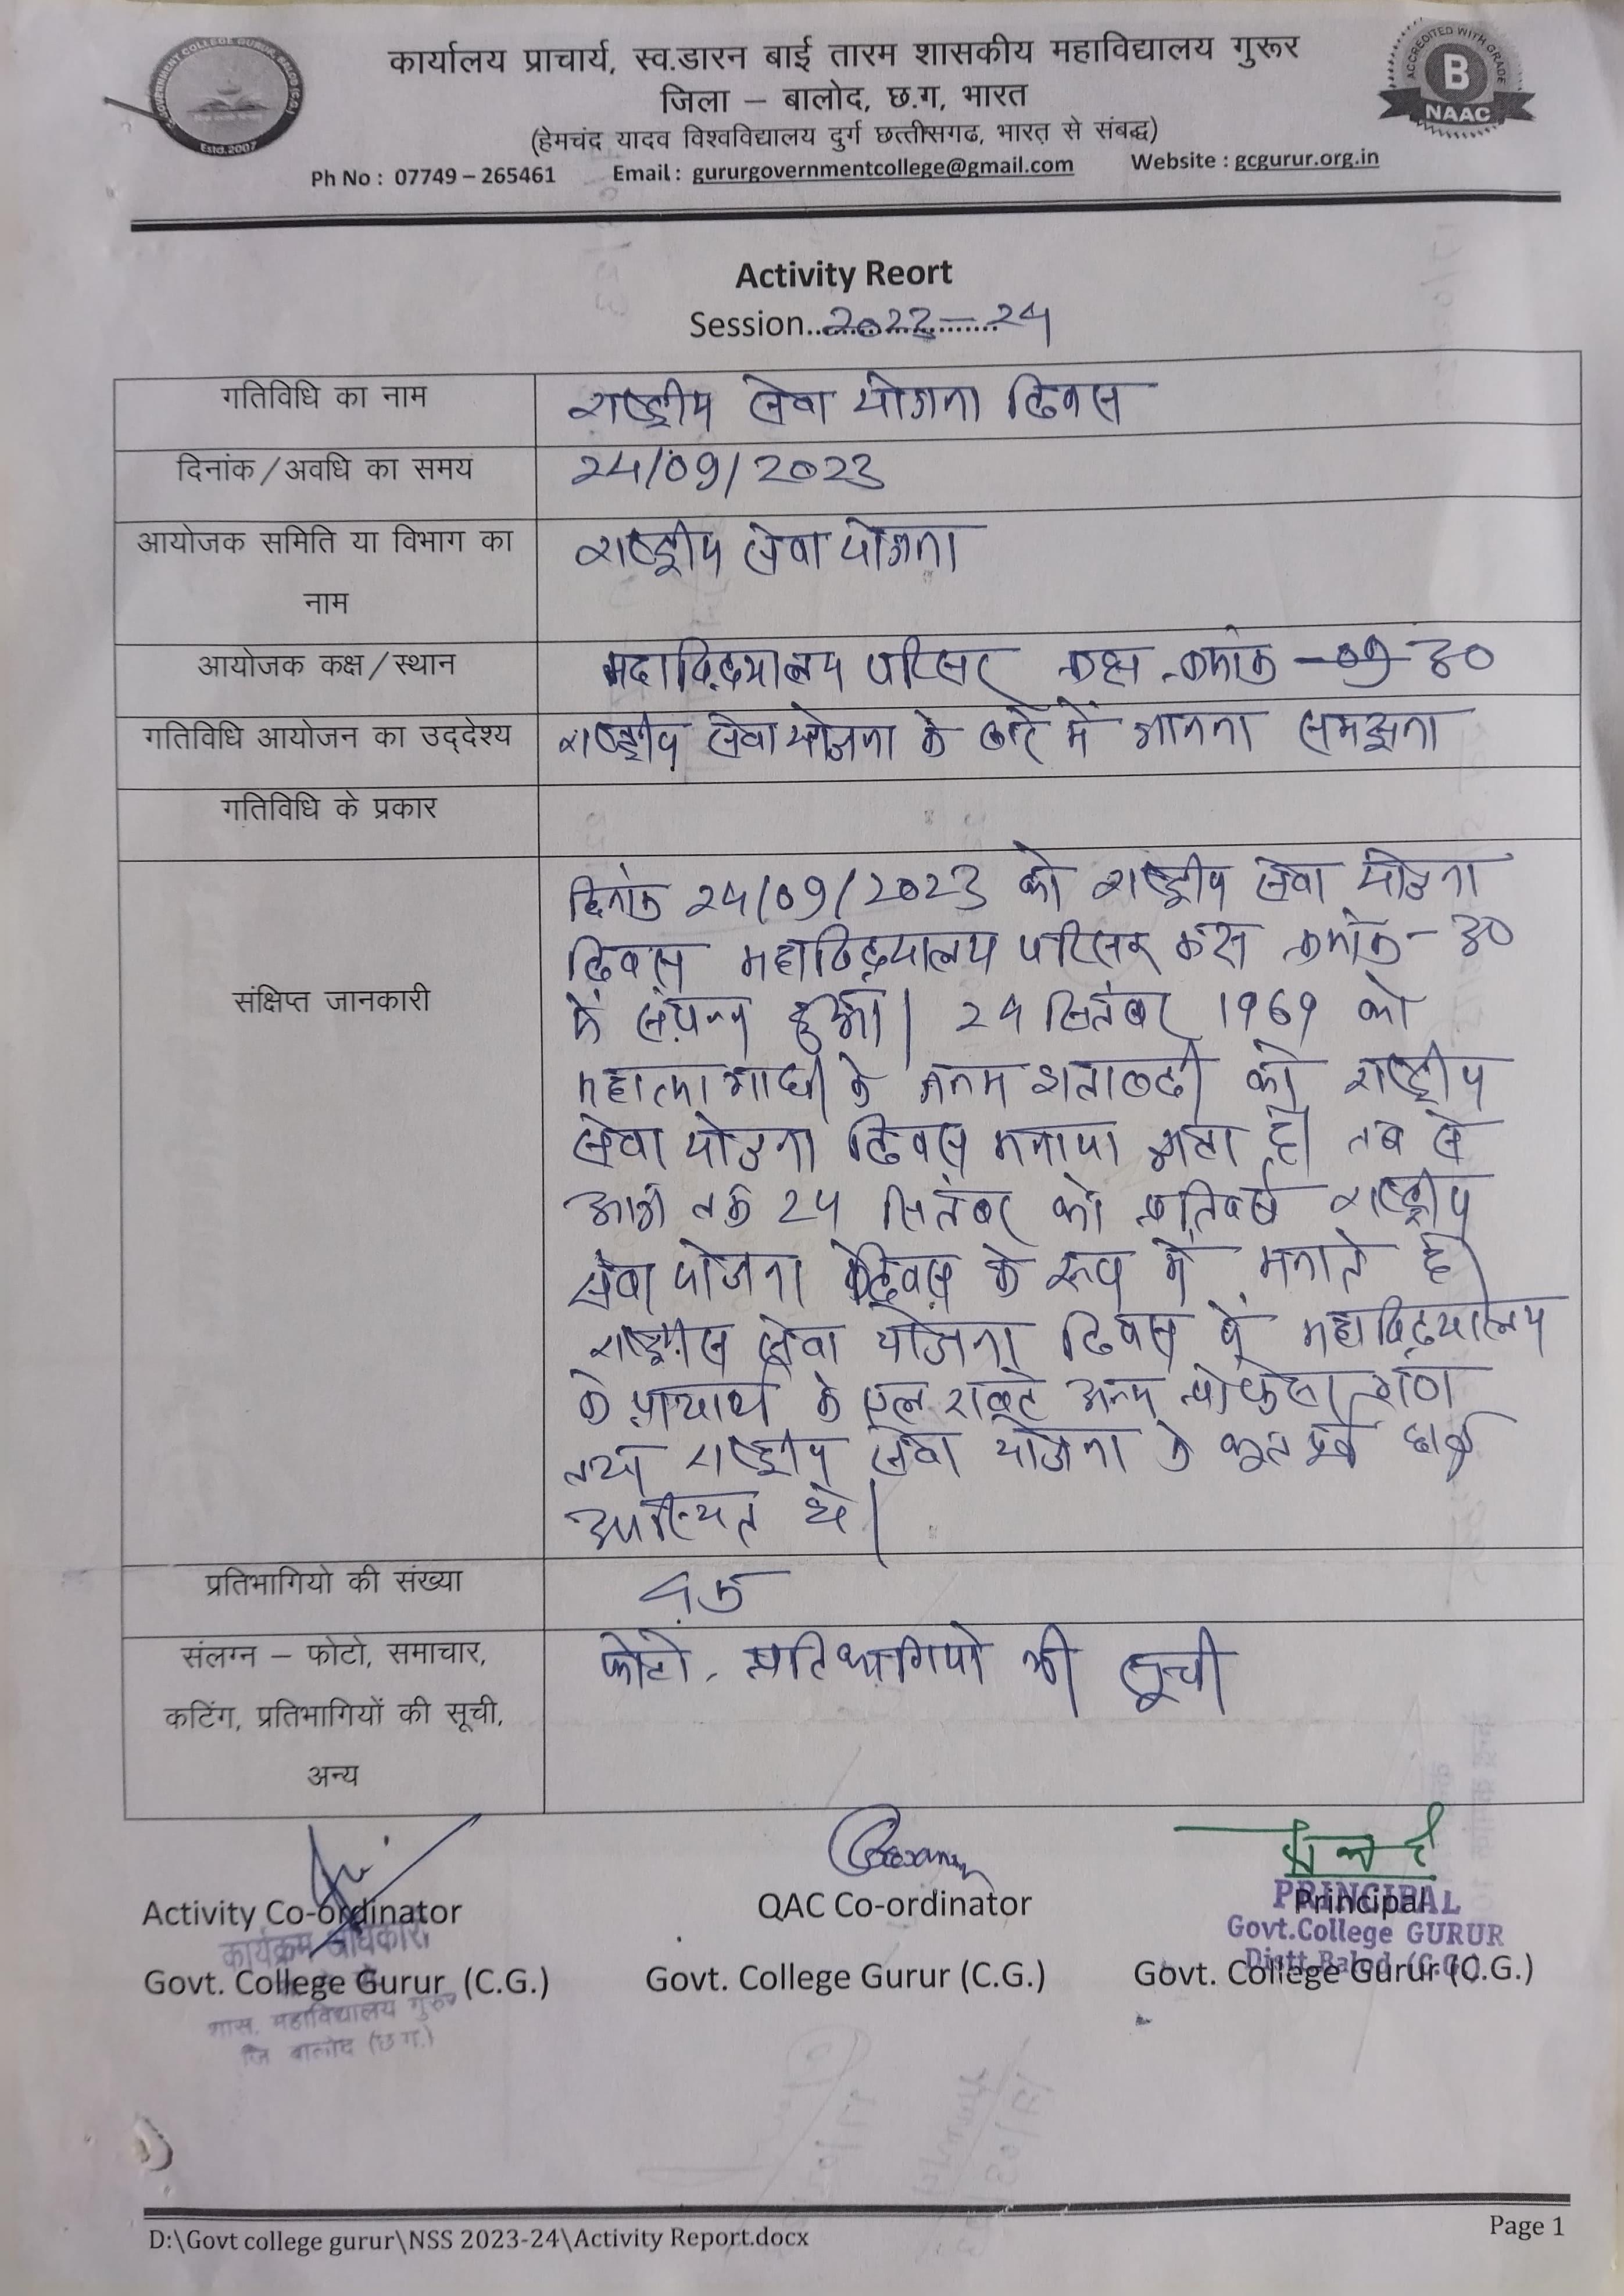 कार्यालय प्राचार्य, स्व.डारन बाई तारम शासकीय महाविद्यालय गुरूर
जिला – बालोद, छ.ग, भारत
(हेमचंद यादव विश्वविद्यालय दुर्ग छत्तीसगढ, भारत से संबद्ध)
Ph No : 07749 – 265461 Email : gururgovernmentcollege@gmail.com Website : gcgurur.org.in
GOVERNMENT COLLEGE GURUR, BALOD (C.G.)
Estd.2007
ACCREDITED WITH GRADE
B
NAAC
Activity Reort
Session..2023-24
गतिविधि का नाम राष्ट्रीय सेवा योजना दिवस
दिनांक/अवधि का समय 24/09/2023
आयोजक समिति या विभाग का राष्ट्रीय सेवा योजना
नाम
आयोजक कक्ष/स्थान महाविद्यालय परिसर कक्ष क्रमांक - 30
गतिविधि आयोजन का उद्देश्य राष्ट्रीय सेवा योजना के बारे में जानना समझना
गतिविधि के प्रकार
संक्षिप्त जानकारी
दिनांक 24/09/2023 को राष्ट्रीय सेवा योजना
दिवस महाविद्यालय परिसर कक्ष क्रमांक - 30
में संपन्न हुआ। 24 सितंबर 1969 को
महात्मा गांधी के जन्म शताब्दी को राष्ट्रीय
सेवा योजना दिवस मनाया जाता है। तब से
आज तक 24 सितंबर को प्रतिवर्ष राष्ट्रीय
सेवा योजना दिवस के रूप में मनाते है।
राष्ट्रीय सेवा योजना दिवस में महाविद्यालय
के प्राचार्य के एल रावटे अन्य गण
तथा राष्ट्रीय सेवा योजना के भूतपूर्व छात्र
उपस्थित थे।
प्रतिभागियो की संख्या
संलग्न – फोटो, समाचार, फोटो, प्रतिभागियो की सूची
कटिंग, प्रतिभागियों की सूची,
अन्य
Activity Co-ordinator QAC Co-ordinator Principal
Govt. College Gurur (C.G.) Govt. College Gurur (C.G.) Govt. College Gurur (C.G.)
कार्यक्रम अधिकारी
शास. महाविद्यालय गुरूर
जि बालोद (छ.ग.)
PRINCIPAL
Govt.College GURUR
Distt.Balod (C.G.)
D:\Govt college gurur\NSS 2023-24\Activity Report.docx Page 1